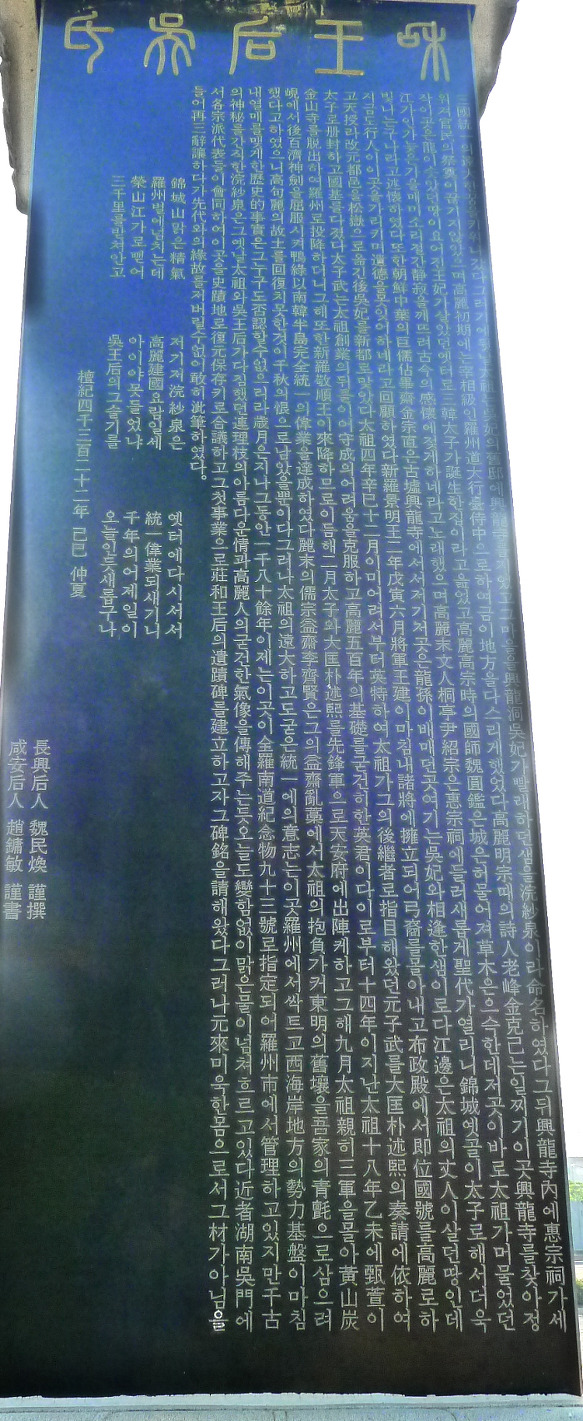 和王后吳氏
吳妃의舊邸에興龍寺를 그마을을興龍洞吳妃가빨래하던샘을浣紗泉이라命名하였다그뒤興龍寺內에惠宗祠가세
끊기지않았으며高麗初期에는宰相級인羅州道大行臺侍中으로하여금이地方을다스리게했었다高麗明宗때의詩人老峰金克己는일찌기이곳興龍寺를찾아정
자이곳은龍이솟았던땅이요어진王妃가살았던옛터로三韓太子가誕生한절이라고읊었고高麗高宗時의國師魏圓鑑은城은허물어져草木은으슥한데저곳이바로太祖가머물었던
江가 늦은가을매미소리절간靜寂을깨뜨려古今의感懷에젖게하네라고노래했으며高麗末文人桐亭尹紹宗은惠宗祠에들러새롭게聖代가열리니錦城옛골이太子로해서더욱
빛나는구나라고述懷하였다또한朝鮮中葉의巨儒佔畢齋金宗直은古墟興龍寺에서서저기저곳은龍孫이배태던곳여기는吳妃와相逢한샘이로다江邊은太祖의丈人이살던땅인데
지금도行人이이곳을가리키며遺德을못잊어하네라고回顧하였다新羅景明王二年戊寅六月將軍王建이마침내諸將에擁立되어弓裔를몰아내고布政殿에서即位國號를高麗로하
고天授라改元都邑을松嶽으로옮긴後吳妃를新都로맞았다太祖四年辛巳十二月이미어려서부터英特하여太祖가그의後繼者로指目해왔던元子武를大匡朴述熙의奏請에依하여
太子로册封하고國基를다졌다太子武는太祖創業의뒤를이어守成의어려움을克服하고高麗五百年의基礎를굳건히한英君이다이로부터十四年이지난太祖十八年乙未에甄萱이
金山寺를脫出하여羅州로投降하더니그해또한新羅敬順王이來降하므로이듬해二月太子와大匡朴述熙를先鋒軍으로天安府에出陣케하고그해九月太祖親히三軍을몰아黃山炭
峴에서後百濟神劍을屈服시켜鴨綠以南韓半島完全統一의偉業을達成하였다麗末의儒宗益齋李齊賢은그의益齋亂藁에서太祖의抱負가커東明의舊壤을吾家의青氈으로삼으려
했다고하였으니高句麗의故土를回復치못한것이千秋의恨으로남았을뿐이다그러나太祖의遠大하고도굳은統一에의意志는이곳羅州에서싹트고西海岸地方의勢力基盤이마침
내열매를맺게한歷史的事實은그누구도否認할수없으리라歲月은지나그동안一千八十餘年이제는이곳이全羅南道紀念物九十三號로指定되어羅州市에서管理하고있지만千古
의神秘를간직한浣紗泉은그옛날太祖와吳王后가다짐했던連理枝의아름다운情과高麗人의굳건한氣像을傳해주는듯오늘도變함없이맑은물이넘쳐흐르고있다近者湖南吳門에
서各宗派代表들이會同하여이곳을史蹟地로復元保存키로合議하고그첫事業으로莊和王后의遺蹟碑를建立하고자그碑銘을請해왔다그러나元來미욱한몸으로서그材가아님을
들어再三辭讓하다가先代와의緣故를저버릴수없어敢히泚筆하였다。
錦城山맑은精氣 저기저浣紗泉은 옛터에다시서서
羅州벌에넘치는데 高麗建國요람일세 統一偉業되새기니
榮山江가로뻗어 아이야못들었냐 千年의어제일이
三千里를받쳐안고 吳王后의그슬기를 오늘인듯새롭구나
檀紀四千三百二十二年 己巳 仲夏
長興后人 魏民煥 謹撰
咸安后人 趙鏞敏 謹書